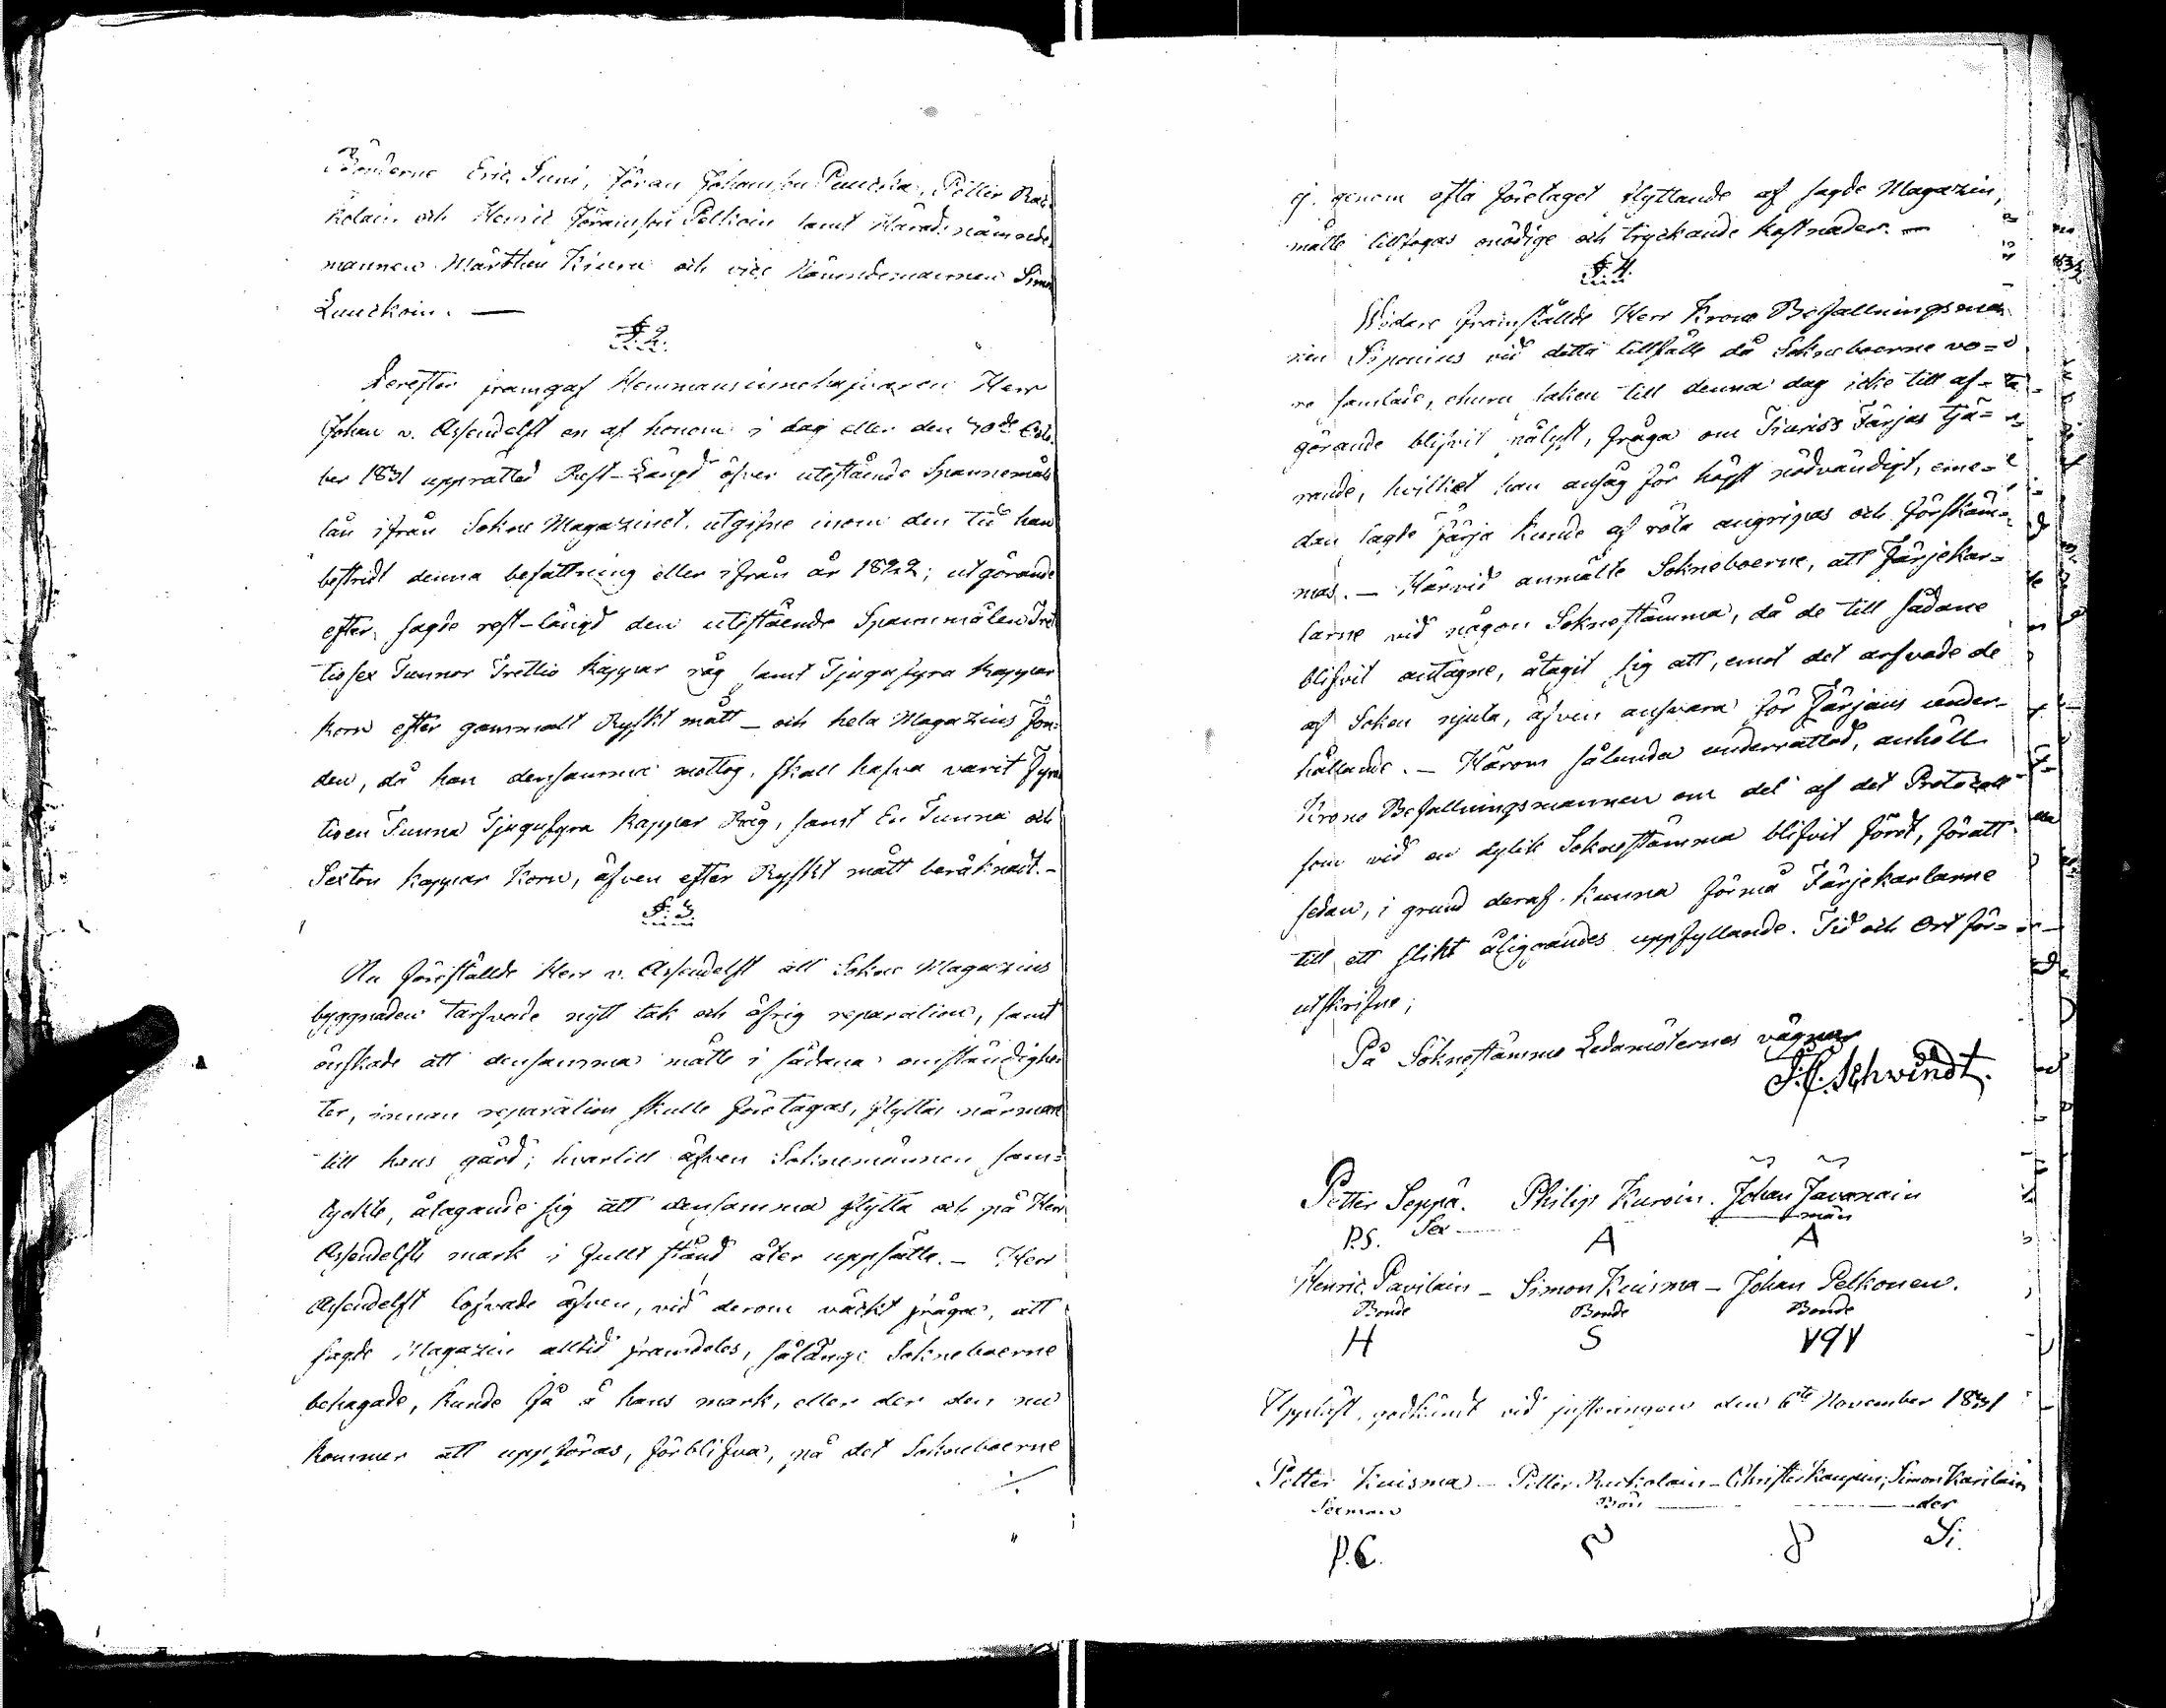 Bönderne Eric Suni, Jöran Johansson Puuckka, Petter Rac-
kolain och Henric Jöransson Pelkoin samt Härads nämnde
mannen Mårthen Kiuru och vice Nämndemannen Simon
Luuckoin. —
§. 2.
Derefter framgaf Hemmansinnehafvaren Herr
Johan v. Assendelft en af honom i dag eller den 30de Octo-
ber 1831 upprättad Rest-Längd öfver utestående Spannemåls
lån ifrån Sokne Magazinet, utgifne inom den tid han
bestridt denna befattning eller ifrån år 1822; utgörande
efter sagde rest-längd den utestående Spannmålen Tret-
tiosex Tunnor Trettio kappar råg samt Tjugufyra kappar
korn efter gammalt Ryskt mått — och hela Magazins Fon-
den, då han densamma mottog, skall hafva varit Fyra
tioen Tunna Tjugufyra kappar Råg, samt En Tunna och
Sexton kappar Korn, äfven efter Ryskt mått beräknadt. -
§. 3.
Nu föreställde Herr v. Assendelft att Sokne Magazins
byggnaden tarfvade nytt tak och öfrig reparation, samt
önskade att densamma måtte i sådana omständighe-
ter, innan reparation skulle företagas, flyttas närmare
till hans gård; hvartill äfven Soknemännen sam-
tyckte, åtagande sig att densamma flytta och på Herr
Assendelfts mark i fullt stånd åter uppsätta. — Herr
Assendelft lofvade äfven, vid derom väckt fråga, att
sagde Magazin alltid framdeles, sålänge Sokneboerne
behagade, kunde få å hans mark, eller der den nu
kommer att uppföras, förblifva, på det Sokneboerne
./.
ej genom ofta företaget flyttande af sagde Magazin,
måtte tillfogas onödige och tryckande kostnader. —
§. 4.
Vidare framställde Herr Krono Befallningsman
nen Siponius vid detta tillfälle då Sokneboerne vo=
ro samlade, churu saken till denna dag icke till af=
görande blifvit pålyst, fråga om Tiuriss Färjas tjä=
rande, hvilket han ansåg för högst nödvändigt, eme=
dan sagde färja kunde af röta angripas och förskäm=
mas. — Härvid anmälte Sokneboerne, att Färjekar=
larne vid någon Soknestämma, då de till sådane
blifvit antagne, åtagit sig att, emot det arfvode de
af Soken njuta, äfven ansvara för Färjans under-
hållande. — Härom sålunda underrättad, anhöll
Krono Befallningsmannen om del af det Protocoll
som vid en dylik Soknestämma blifvit fördt, föratt
sedan, i grund deraf kunna förmå Färjekarlarne
till ett slikt åliggandes uppfyllande. Tid och Ort för=
utskrifne;
På Soknestämmo Ledamöternes vägnar
Schvindt.
Petter Seppä. Philip Kuroin. Johan Javanain
Sex — män
P.S. A A
Henric Pavilain - Simon Kuisma - Johan Pelkonen.
Bonde Bonde Bonde
H S
Uppläst, godkändt vid justeringen den 6te November 1831
Petter Kuisma - Petter Ruckolain - Christer Kaupin; Simon Karilain
Sexman Bön — der
P.C. Si